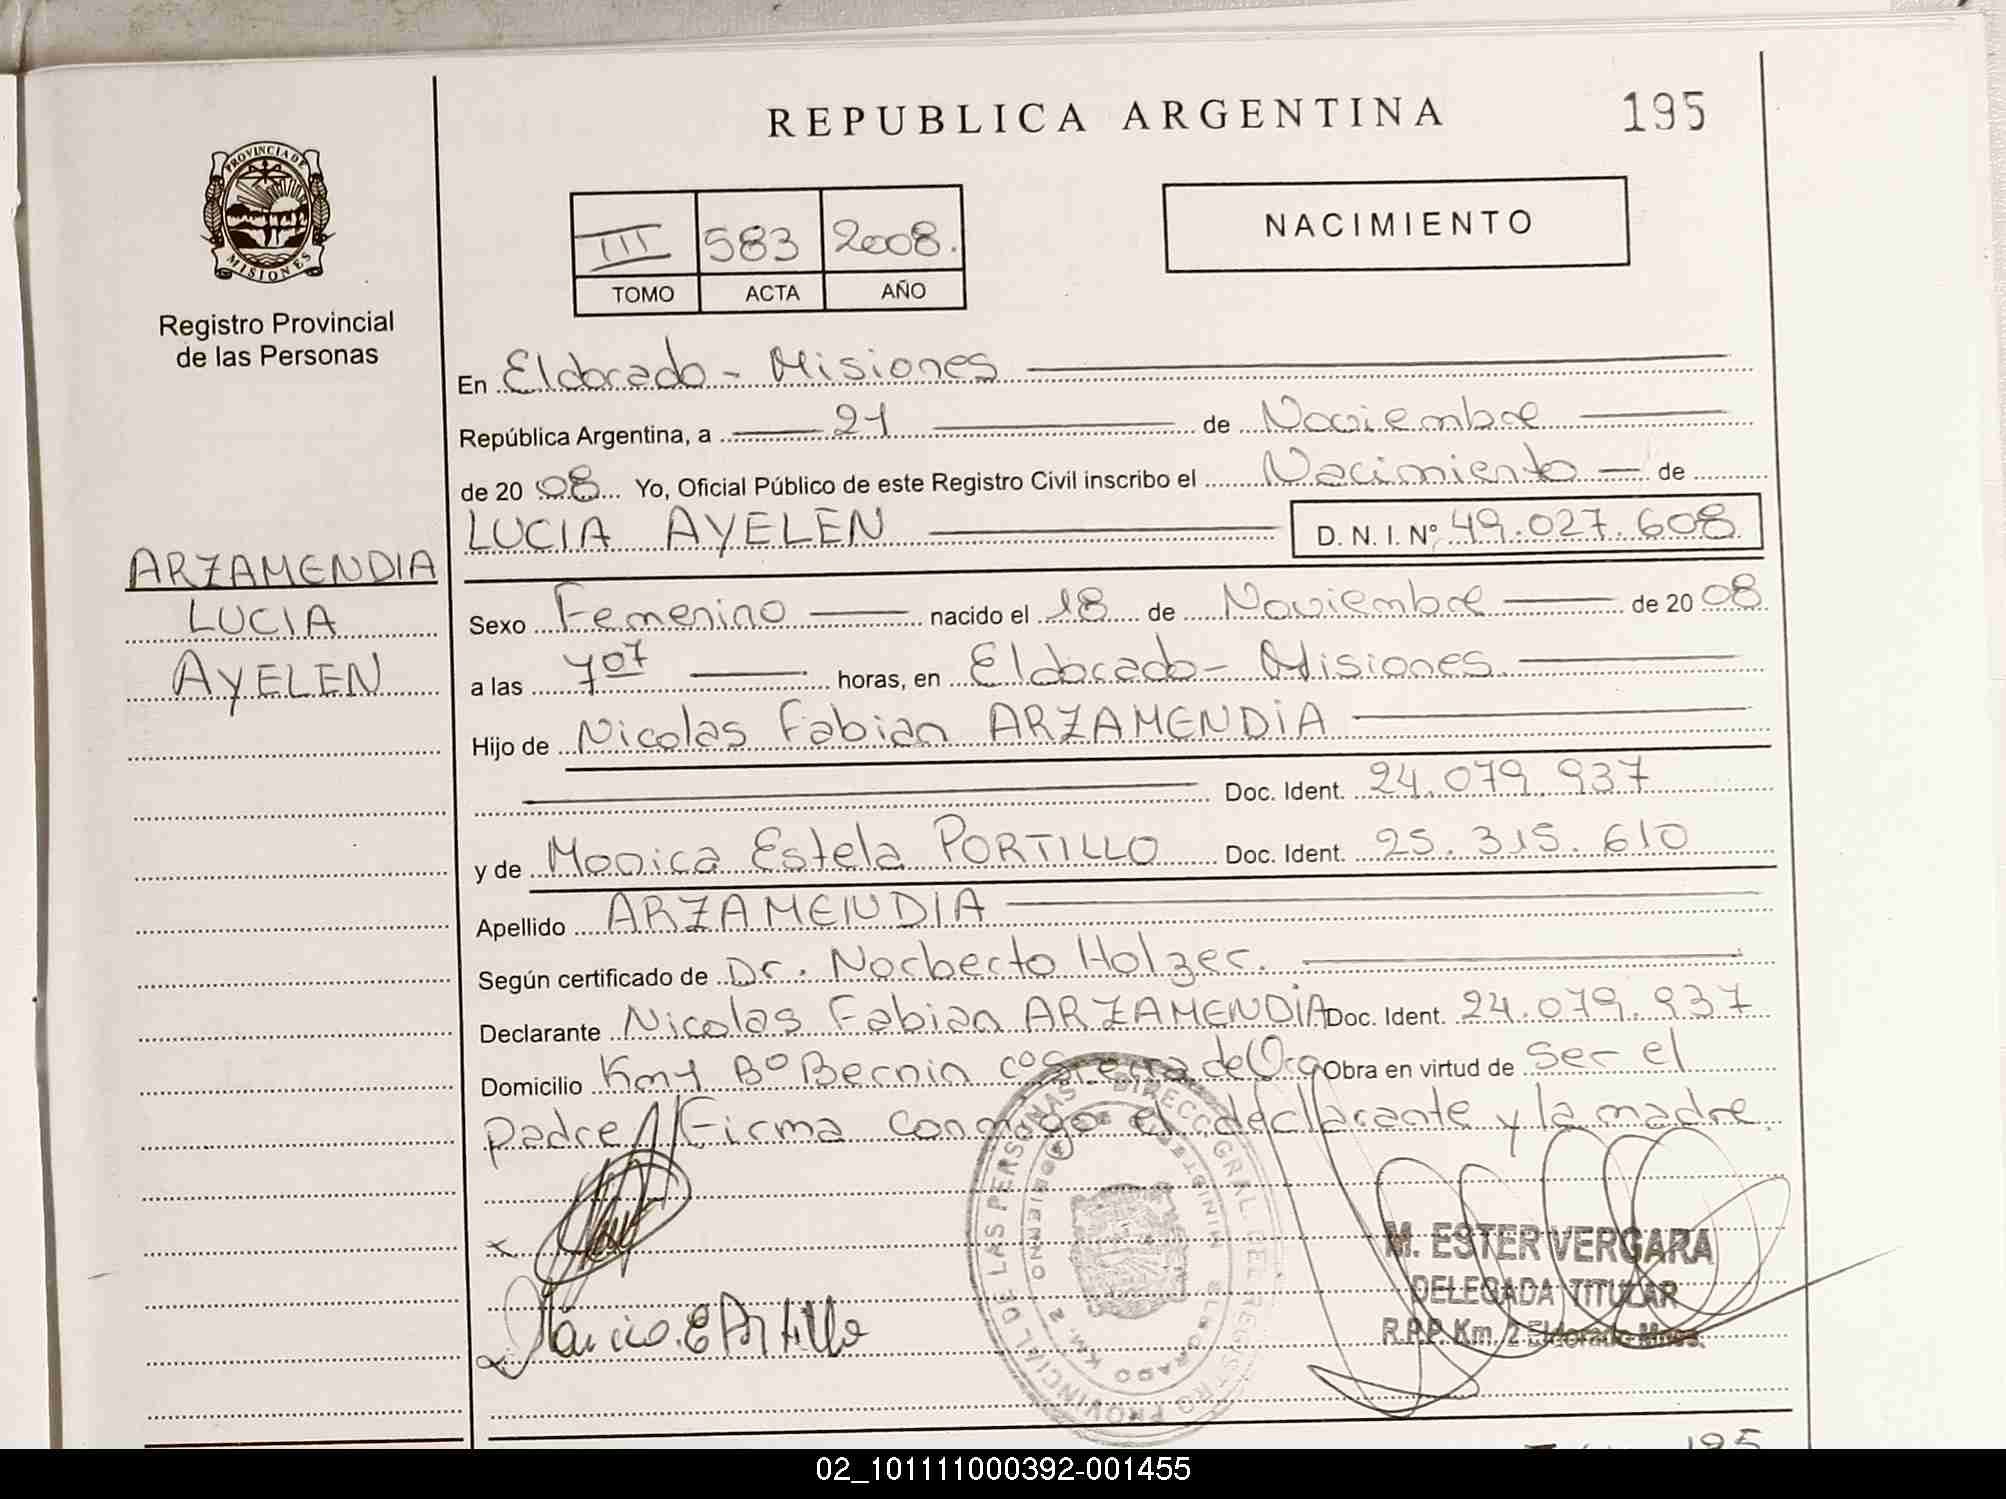 REPUBLICA ARGENTINA
195
PROVINCIA DE
MISIONES
Registro Provincial
de las Personas
III 583 2008.
TOMO ACTA AÑO
NACIMIENTO
En Eldorado - Misiones
República Argentina, a 21 de Noviembre
de 20 08 Yo, Oficial Público de este Registro Civil inscribo el Nacimiento de
LUCIA AYELEN D. N. I. Nº 49.027.608
ARZAMENDIA
LUCIA
AYELEN
Sexo Femenino nacido el 18 de Noviembre de 20 08
a las 7 07 horas, en Eldorado - Misiones
Hijo de Nicolas Fabian ARZAMENDIA
Doc. Ident. 24.079.937
y de Monica Estela PORTILLO Doc. Ident. 25.315.610
Apellido ARZAMENDIA
Según certificado de Dr. Norberto Holzer.
Declarante Nicolas Fabian ARZAMENDIA Doc. Ident. 24.079.937
Domicilio Km1 Bº Bernin Obra en virtud de ser el
padre Firma conmigo el declarante y la madre.
DIRECC. GRAL. DEL REGISTRO PROVINCIAL DE LAS PERSONAS
ELDORADO KM 2
M. ESTER VERGARA
DELEGADA TITULAR
R.P.P. Km. 2 Eldorado Mnes.
195
02_101111000392-001455